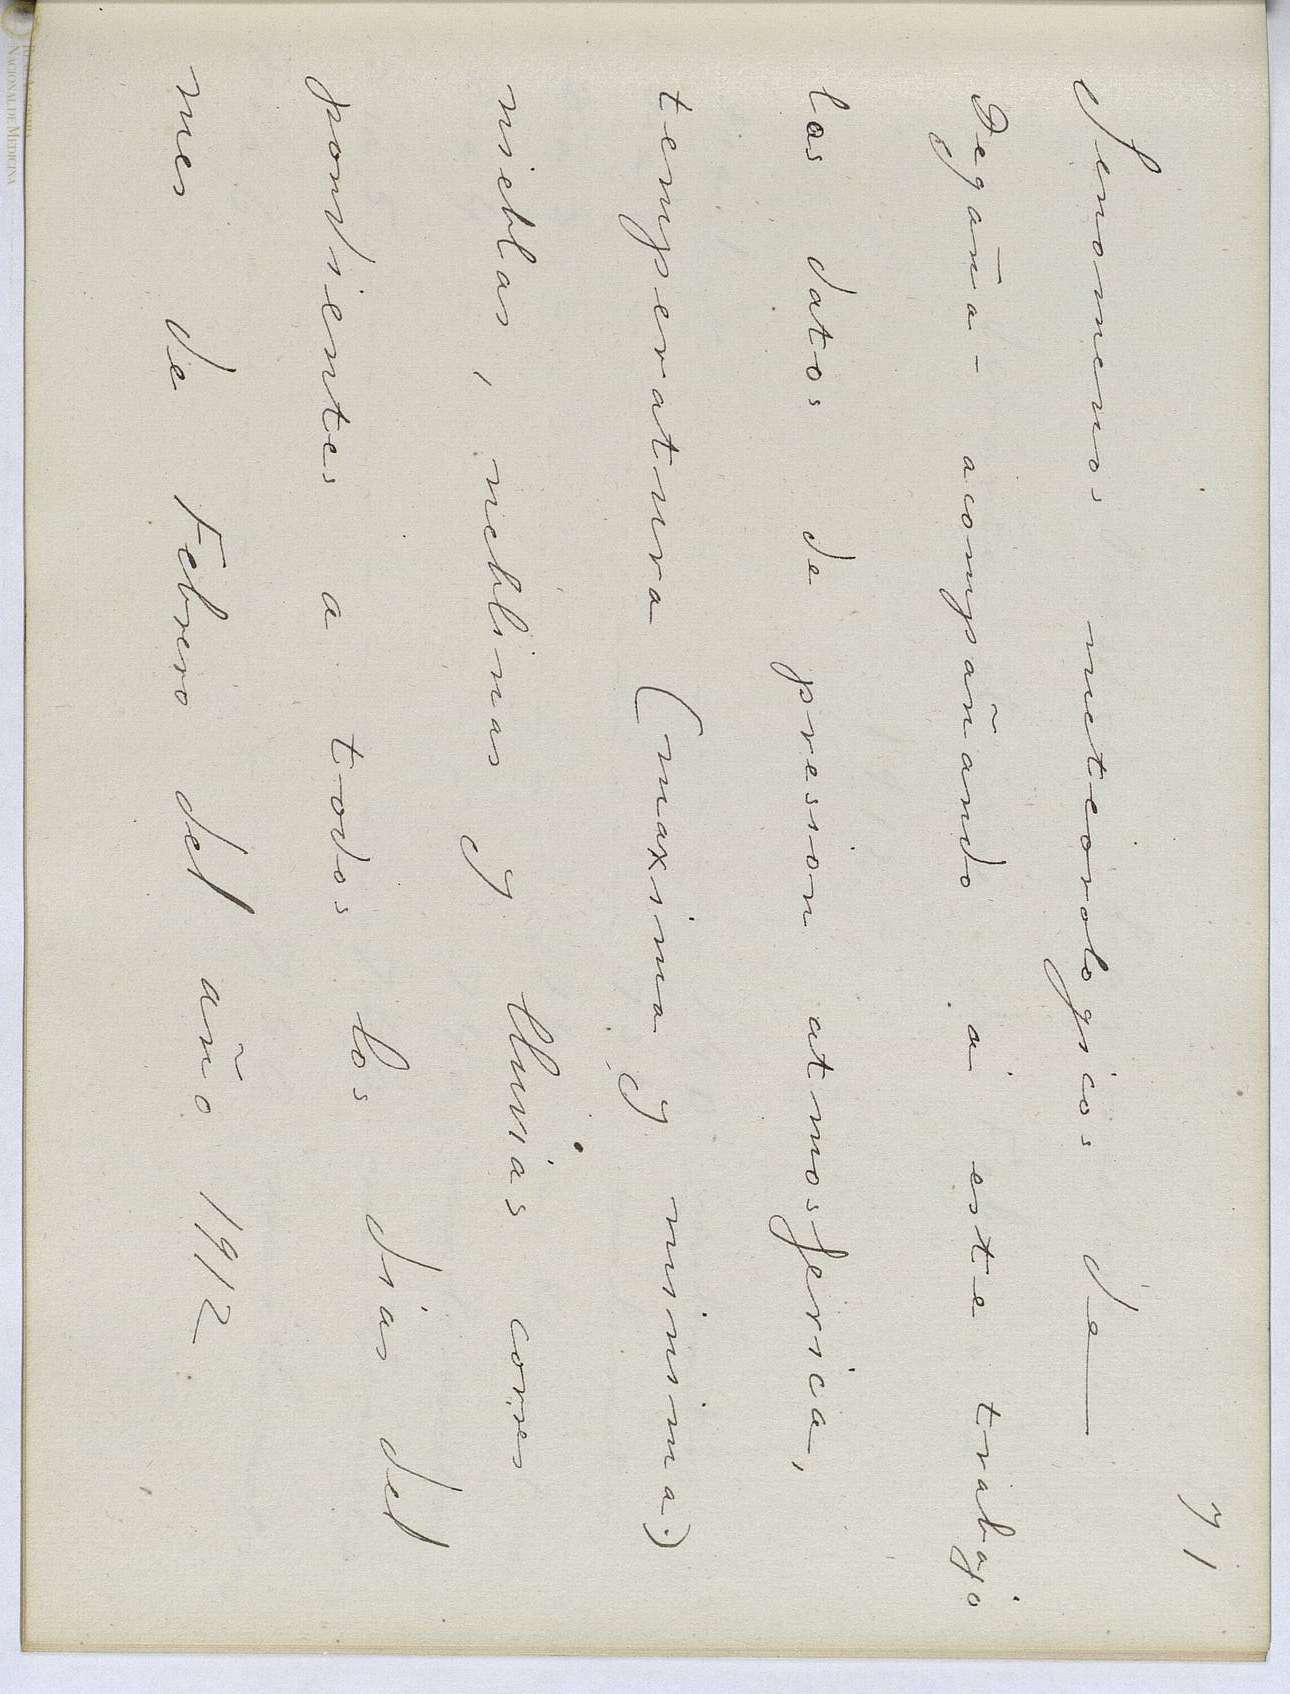 71
Fenomenos meteorologicos de
Degaña - acompañando a este trabajo
los datos de presion atmosferica,
temperatura (maxima y minima)
nieblas, neblinas y lluvias corres
pondientes a todos los dias del
mes de Febrero del año 1912
REAL ACADEMIA
NACIONAL DE MEDICINA